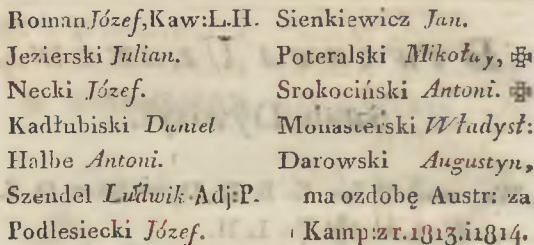 Roman Józef, Kaw: L.H.
Jezierski Julian.
Necki Józef.
Kadłubiski Daniel
Halbe Antoni.
Szendel Ludwik Adj: P.
Podlesiecki Józef.
Sienkiewicz Jan.
Poteralski Mikołay, ✠
Srokociński Antoni. ✠
Monasterski Władysł:
Darowski Augustyn,
ma ozdobę Austr: za
Kamp: z r. 1813. i 1814.